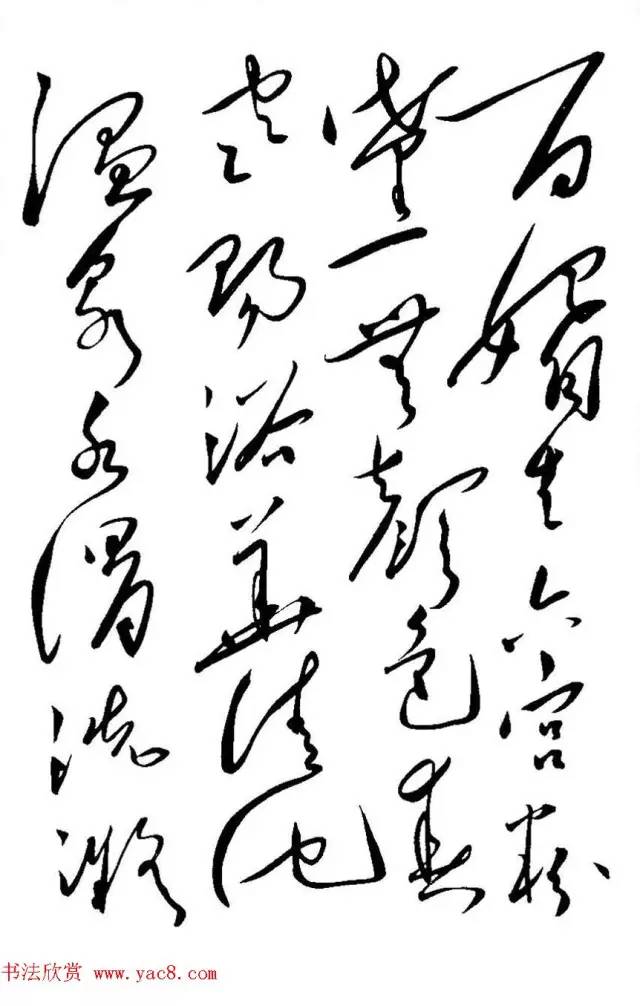 百媚生六宮粉
黛無顏色春
寒賜浴華清池
溫泉水滑洗凝
书法欣赏 www.yac8.com